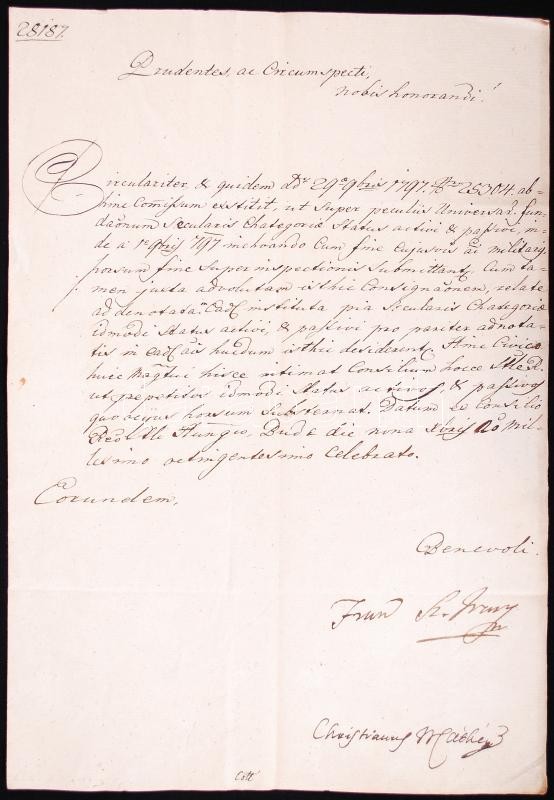 28187.
Prudentes, ac Circumspecti,
nobis honorandi!
Circulariter, & quidem ddo 29a 9bris 1797. Nro 25304. ab-
hinc Comissum exstitit, ut super peculiis Universar. fun-
daonum Secularis Chategoriae Status activi & passivi, in-
de a 1a 9bris 797 inchoando Cum fine Cujusvis ai militaris
horsum fine superinspectionis Submittant. Cum ta-
men juxta advolutam isthic Consignaonem, relate
ad denotata instituta pia Secularis Chategoriae
idmodi Status activi, & passivi pro pariter adnota-
tis in ead ais hucdum isthic desiderent. Hinc Civico
huic Magtui hisce intimat Consilium hocce Ltle R.
ut praepetitos idmodi Status activos & passivos
quo ocijus horsum Substernat. Datum ex Consilio
Reo Ltli Hungco, Budae die nona Xbris Ao Mil-
lesimo octingentesimo Celebrato.
Eorundem,
Benevoli.
Christianus